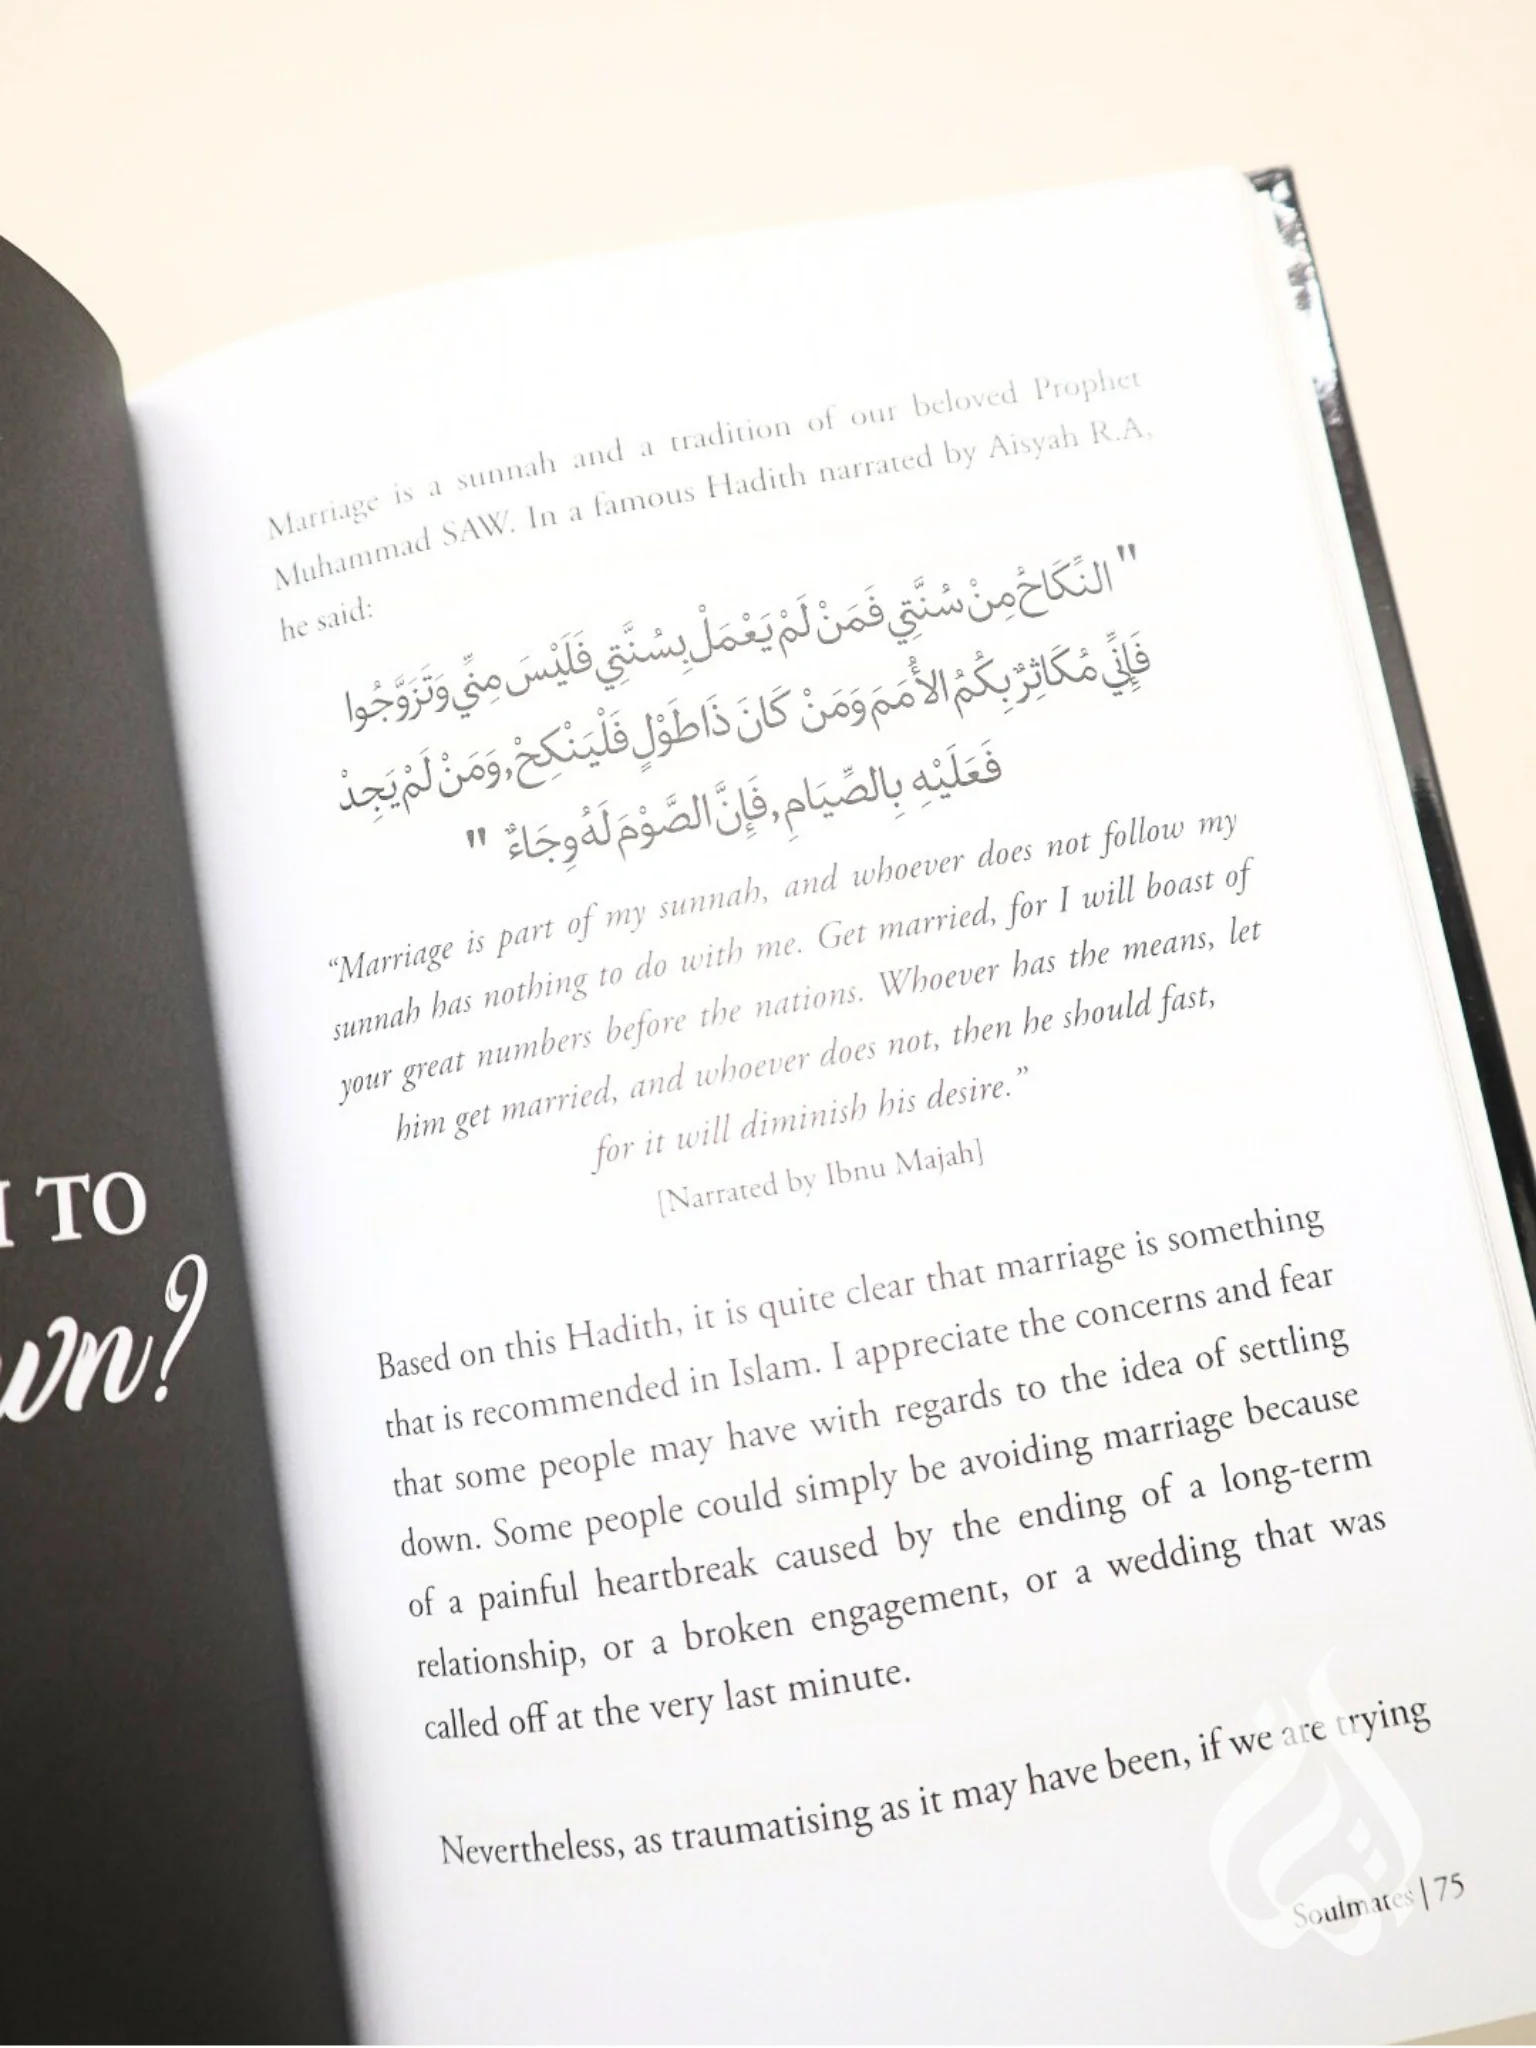 TO
Marriage is a sunnah and a tradition of our beloved Prophet
Muhammad SAW. In a famous Hadith narrated by Aisyah R.A,
he said:
" النِّكَاحُ مِنْ سُنَّتِي فَمَنْ لَمْ يَعْمَلْ بِسُنَّتِي فَلَيْسَ مِنِّي وَتَزَوَّجُوا
فَإِنِّي مُكَاثِرٌ بِكُمُ الأُمَمَ وَمَنْ كَانَ ذَا طَوْلٍ فَلْيَنْكِحْ, وَمَنْ لَمْ يَجِدْ
فَعَلَيْهِ بِالصِّيَامِ, فَإِنَّ الصَّوْمَ لَهُ وِجَاءٌ "
“Marriage is part of my sunnah, and whoever does not follow my
sunnah has nothing to do with me. Get married, for I will boast of
your great numbers before the nations. Whoever has the means, let
him get married, and whoever does not, then he should fast,
for it will diminish his desire.”
[Narrated by Ibnu Majah]
Based on this Hadith, it is quite clear that marriage is something
that is recommended in Islam. I appreciate the concerns and fear
that some people may have with regards to the idea of settling
down. Some people could simply be avoiding marriage because
of a painful heartbreak caused by the ending of a long-term
relationship, or a broken engagement, or a wedding that was
called off at the very last minute.
Nevertheless, as traumatising as it may have been, if we are trying
Soulmates | 75